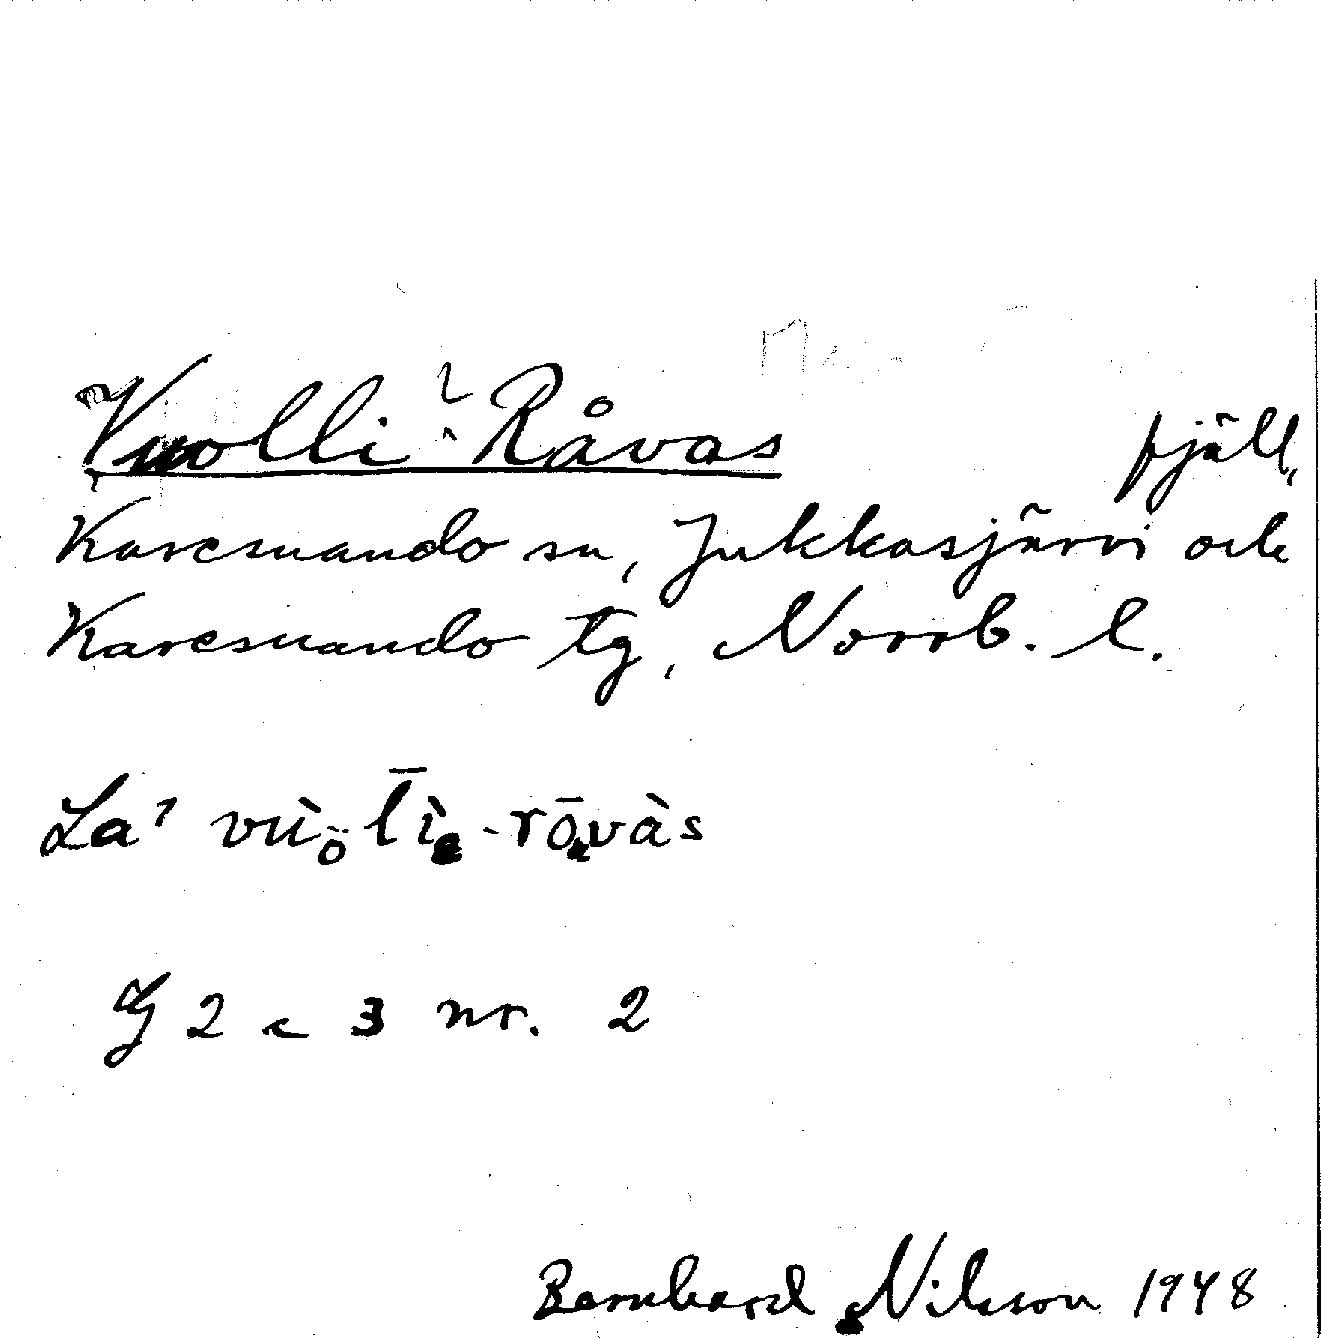 Vuolli-Råvas fjäll,
Karesuando sn, Jukkasjärvi och
Karesuando tg, Norrb. l.
La' vùo̤l̄ì-rōvàs
G 2 c 3 nr. 2
Bernhard Nilsson 1948